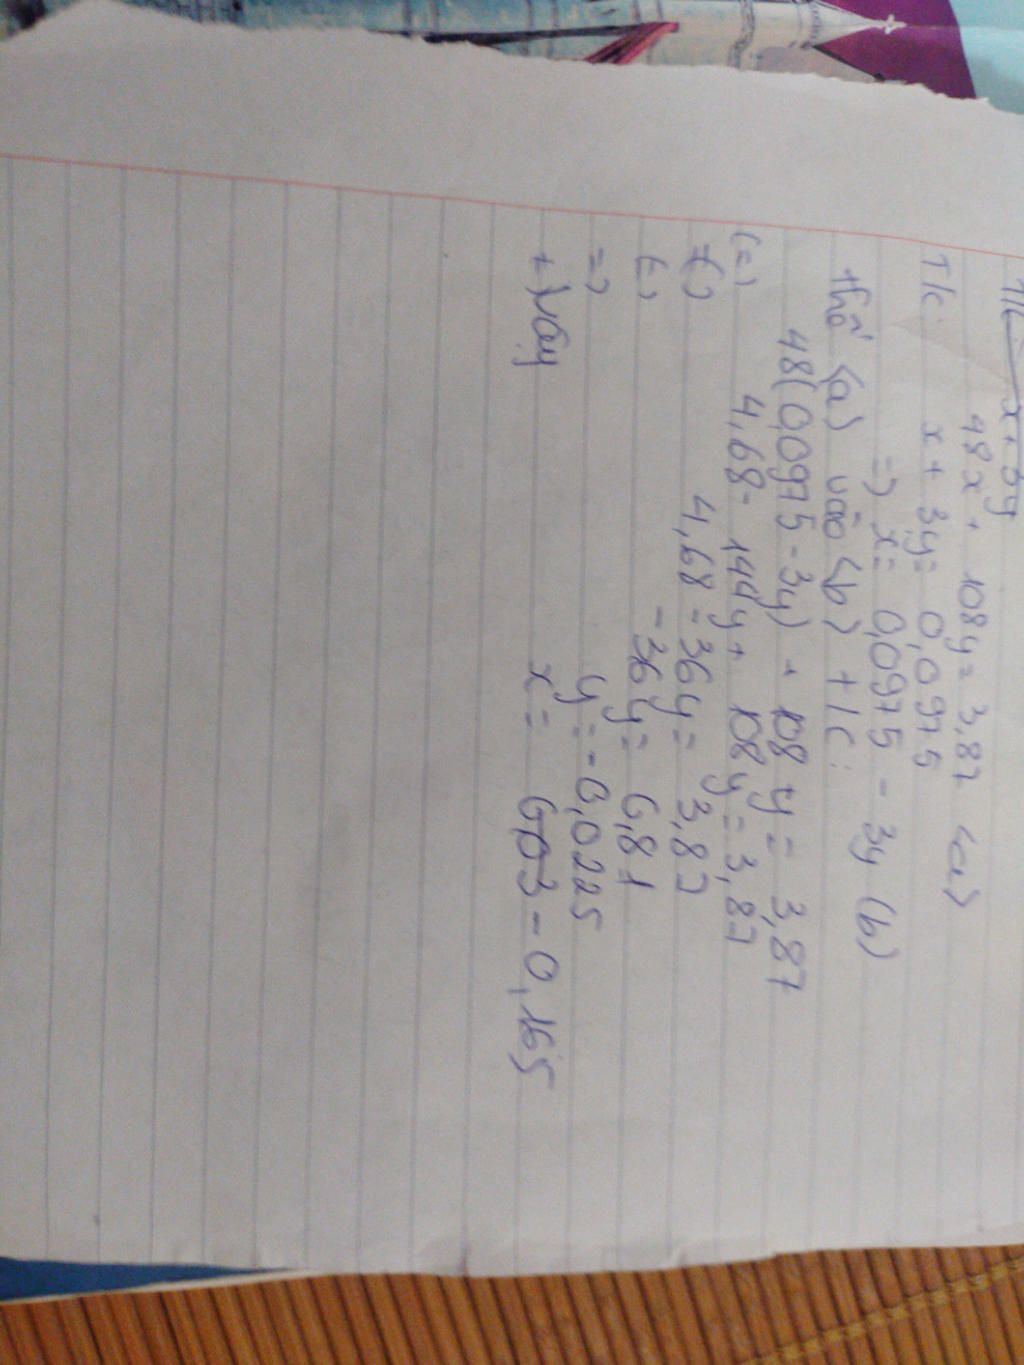 T/c: x + 3y
48x + 108y = 3,87 (a)
T/c: x + 3y = 0,0975
=> x = 0,0975 - 3y (b)
thế (a) vào (b) t/c:
48(0,0975 - 3y) + 108y = 3,87
(=) 4,68 - 144y + 108y = 3,87
(=) 4,68 - 36y = 3,87
(=) -36y = 0,81
=> y = -0,0225
+) Vậy x = 0,165